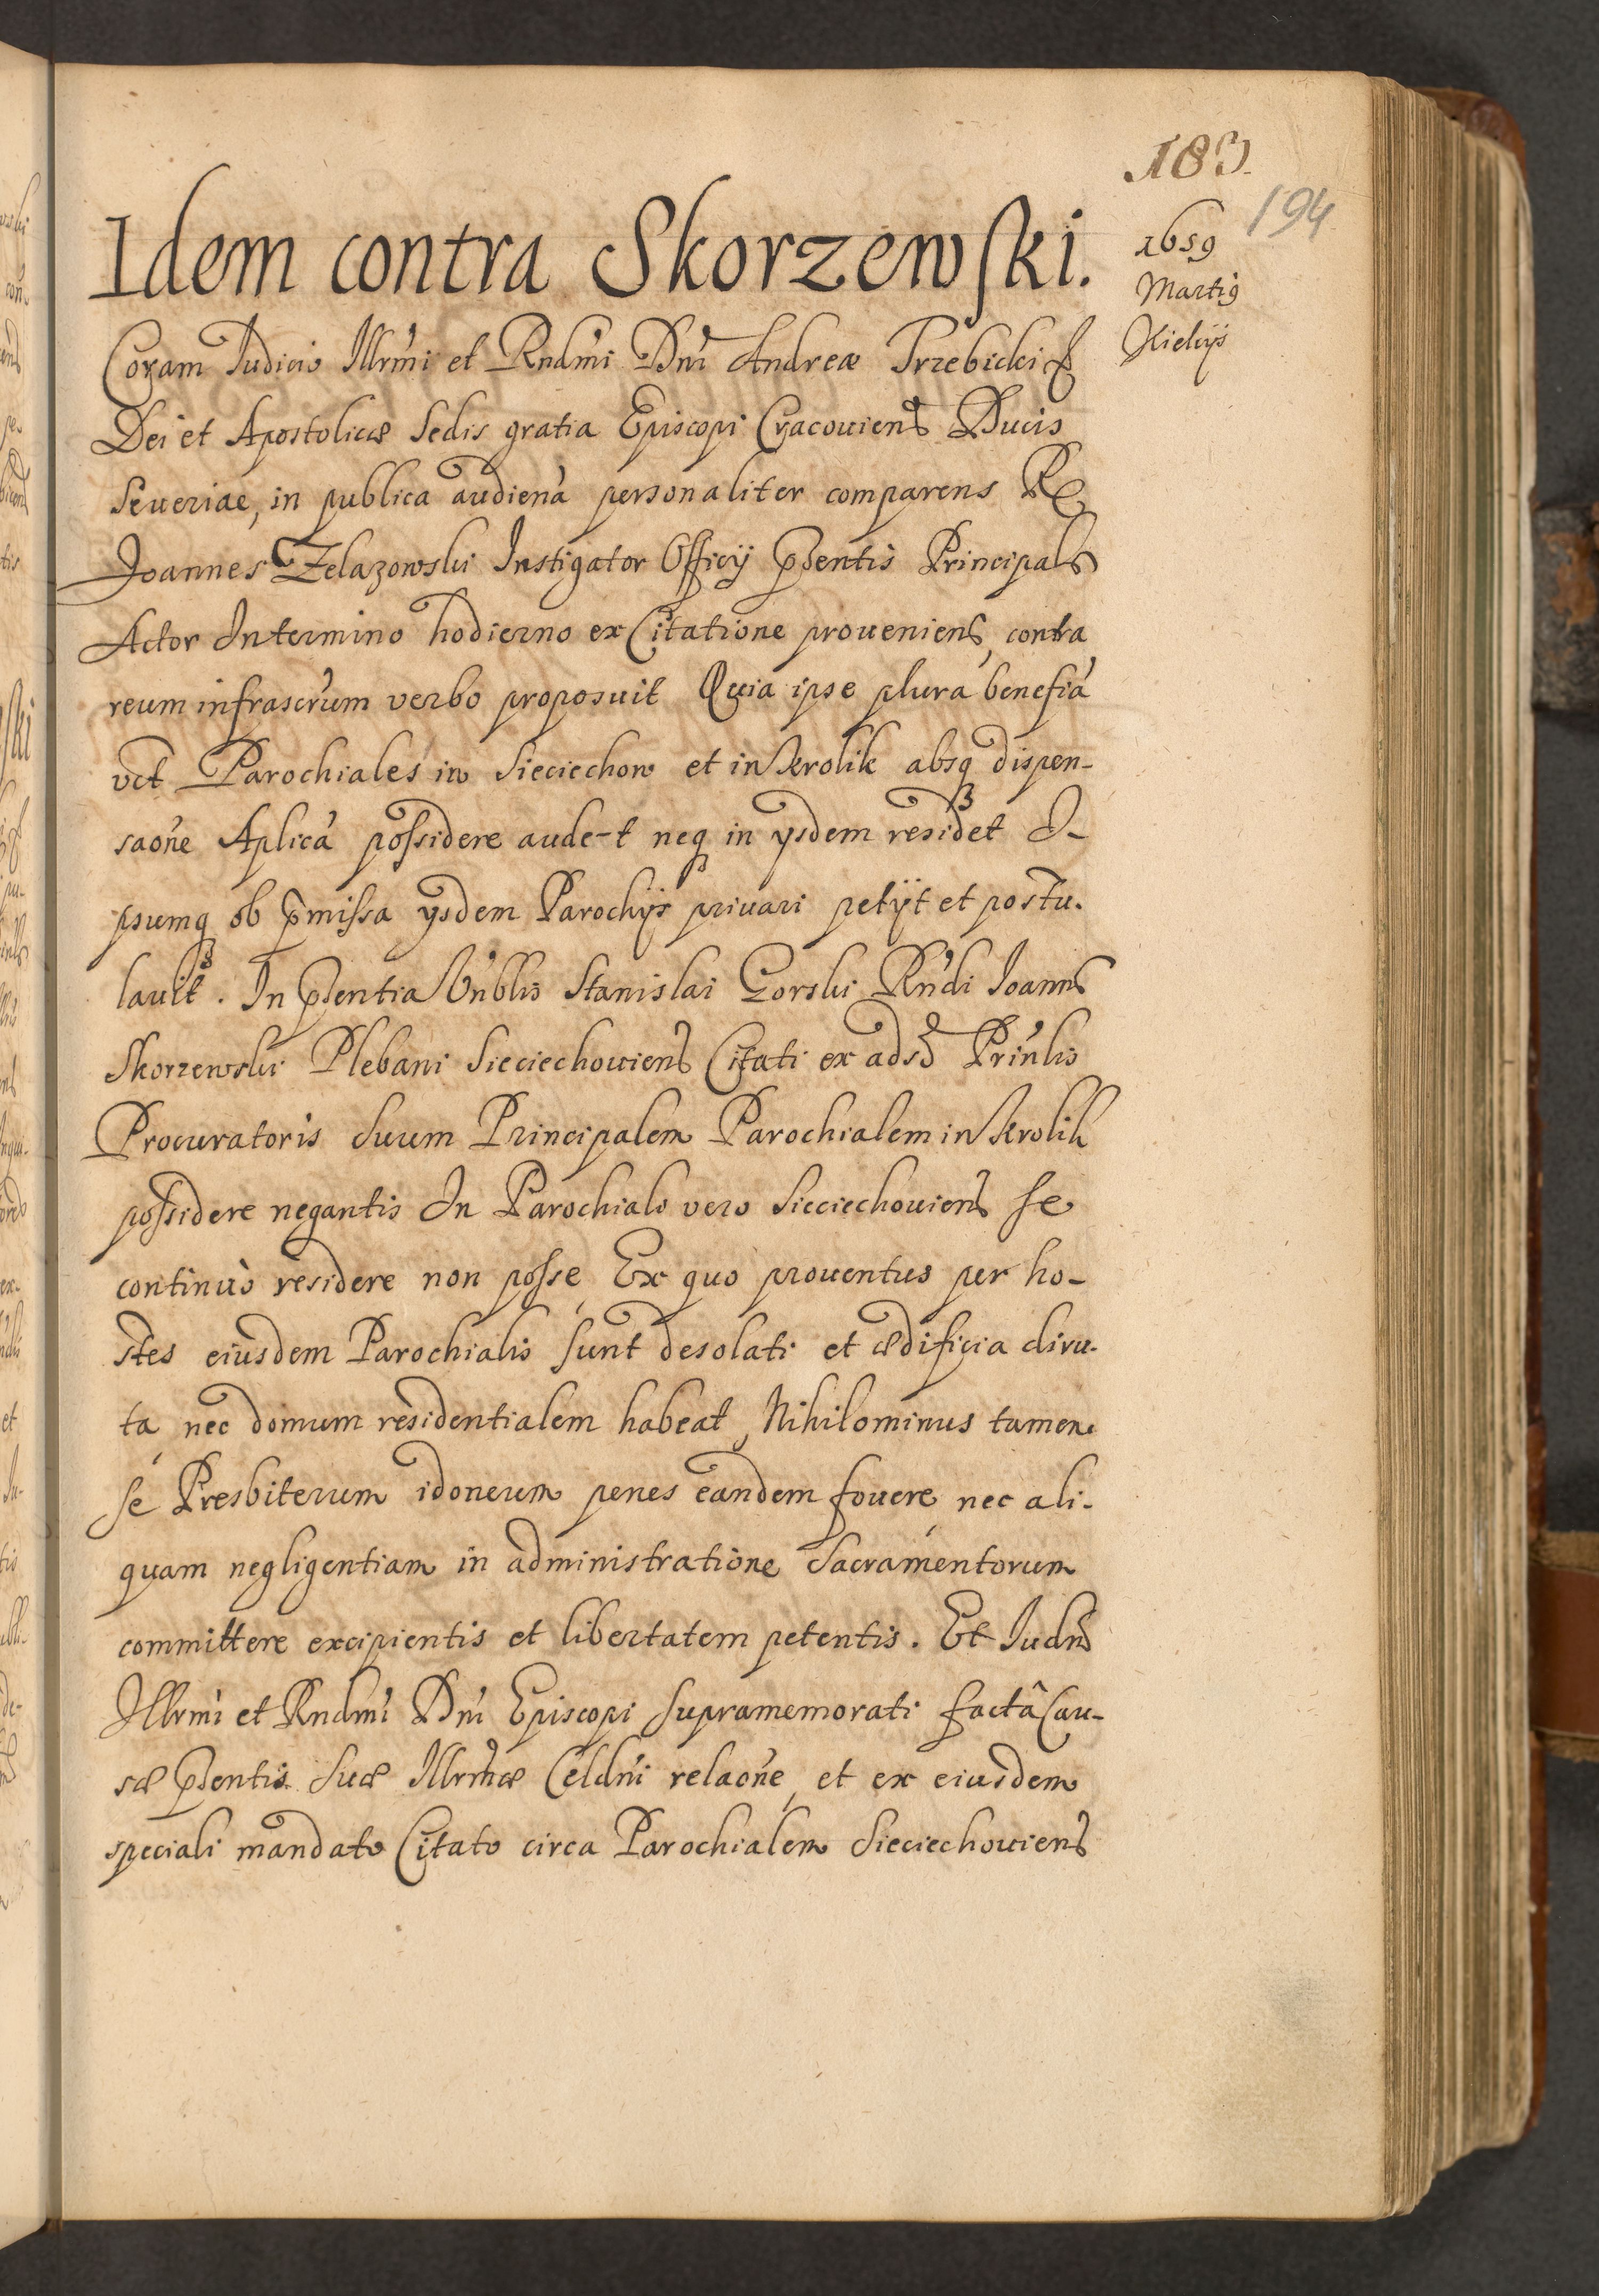 183.
194
1659
Martius
Kielcijs
Idem contra Skorzewski.
Coram Iudicio Illrmi et Rndmi Dni Andreæ Trzebicki
Dei et Apostolicæ Sedis gratia Episcopi Cracouiens Ducis
Seueriae, in publica audiena personaliter comparens R
Joannes Zelazowski Instigator Officij pñtis Principals
Actor In termino hodierno ex Citatione proueniens, contra
reum infrascrum verbo proposuit Quia ipse plura benefia
vct Parochiales in Sieciechow et in Krolik absq dispen-
saone Aplica possidere aude-t neq in ysdem residet I-
psumq ob pmissa ysdem Parochijs priuari petijt et postu-
lauit. In pñtia Vnblis Stanislai Gorski Rndi Joanns
Skorzewski Plebani Sieciechouiens Citati ex adso Prinlis
Procuratoris Suum Principalem Parochialem in Krolik
possidere negantis In Parochiali vero Sieciechouiens se
continuo residere non posse, Ex quo prouentus per ho-
stes eiusdem Parochialis sunt desolati et ædificia diru-
ta nec domum residentialem habeat, Nihilominus tamen
se Presbiterum idoneum penes eandem fouere, nec ali-
quam negligentiam in administratione Sacramentorum
committere excipientis et libertatem petentis. Et Iudm
Illrmi et Rndmi Dni Episcopi supramemorati factâ Cau-
sæ pñtis Suæ Illrmæ Celdni relaone, et ex eiusdem
speciali mandato Citato circa Parochialem Sieciechouiens